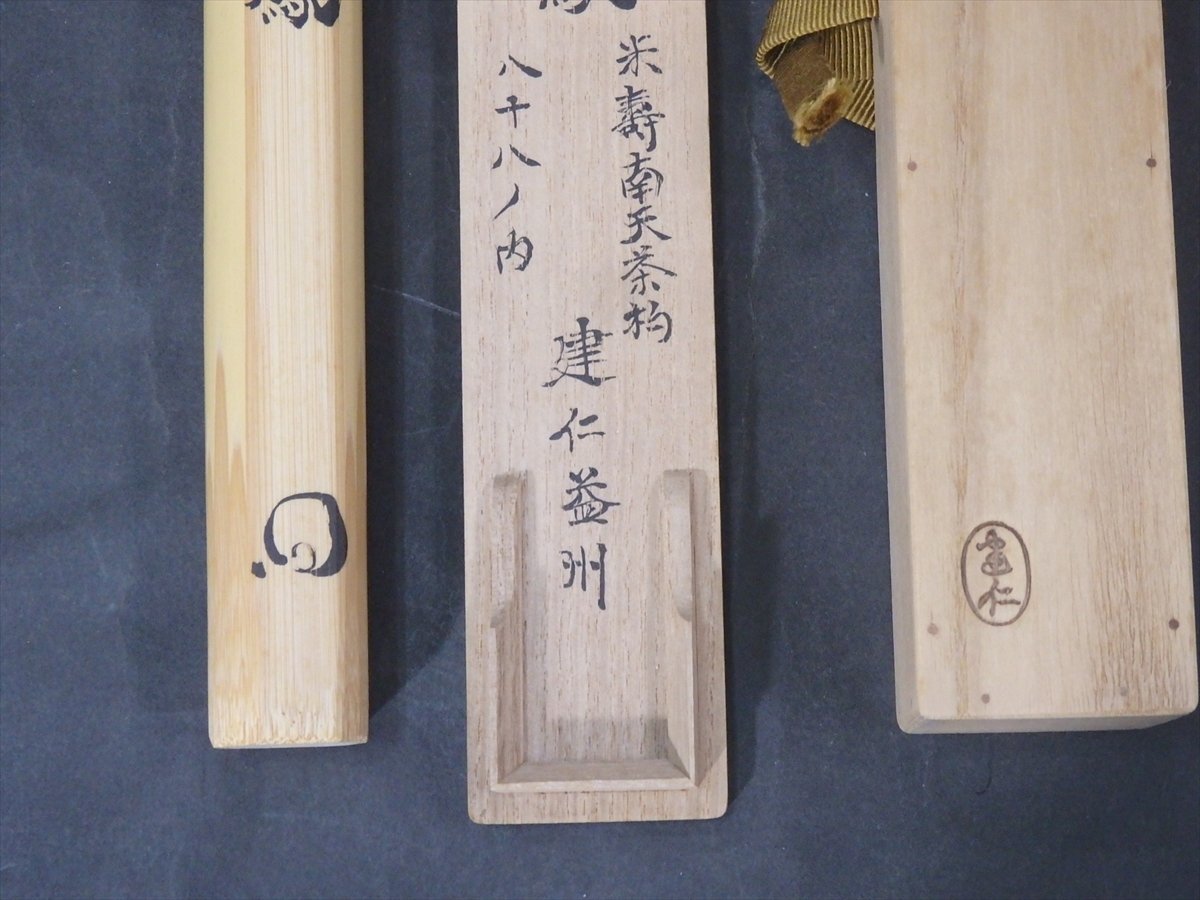 米壽南天茶杓
八十八ノ内
建仁益州
建仁